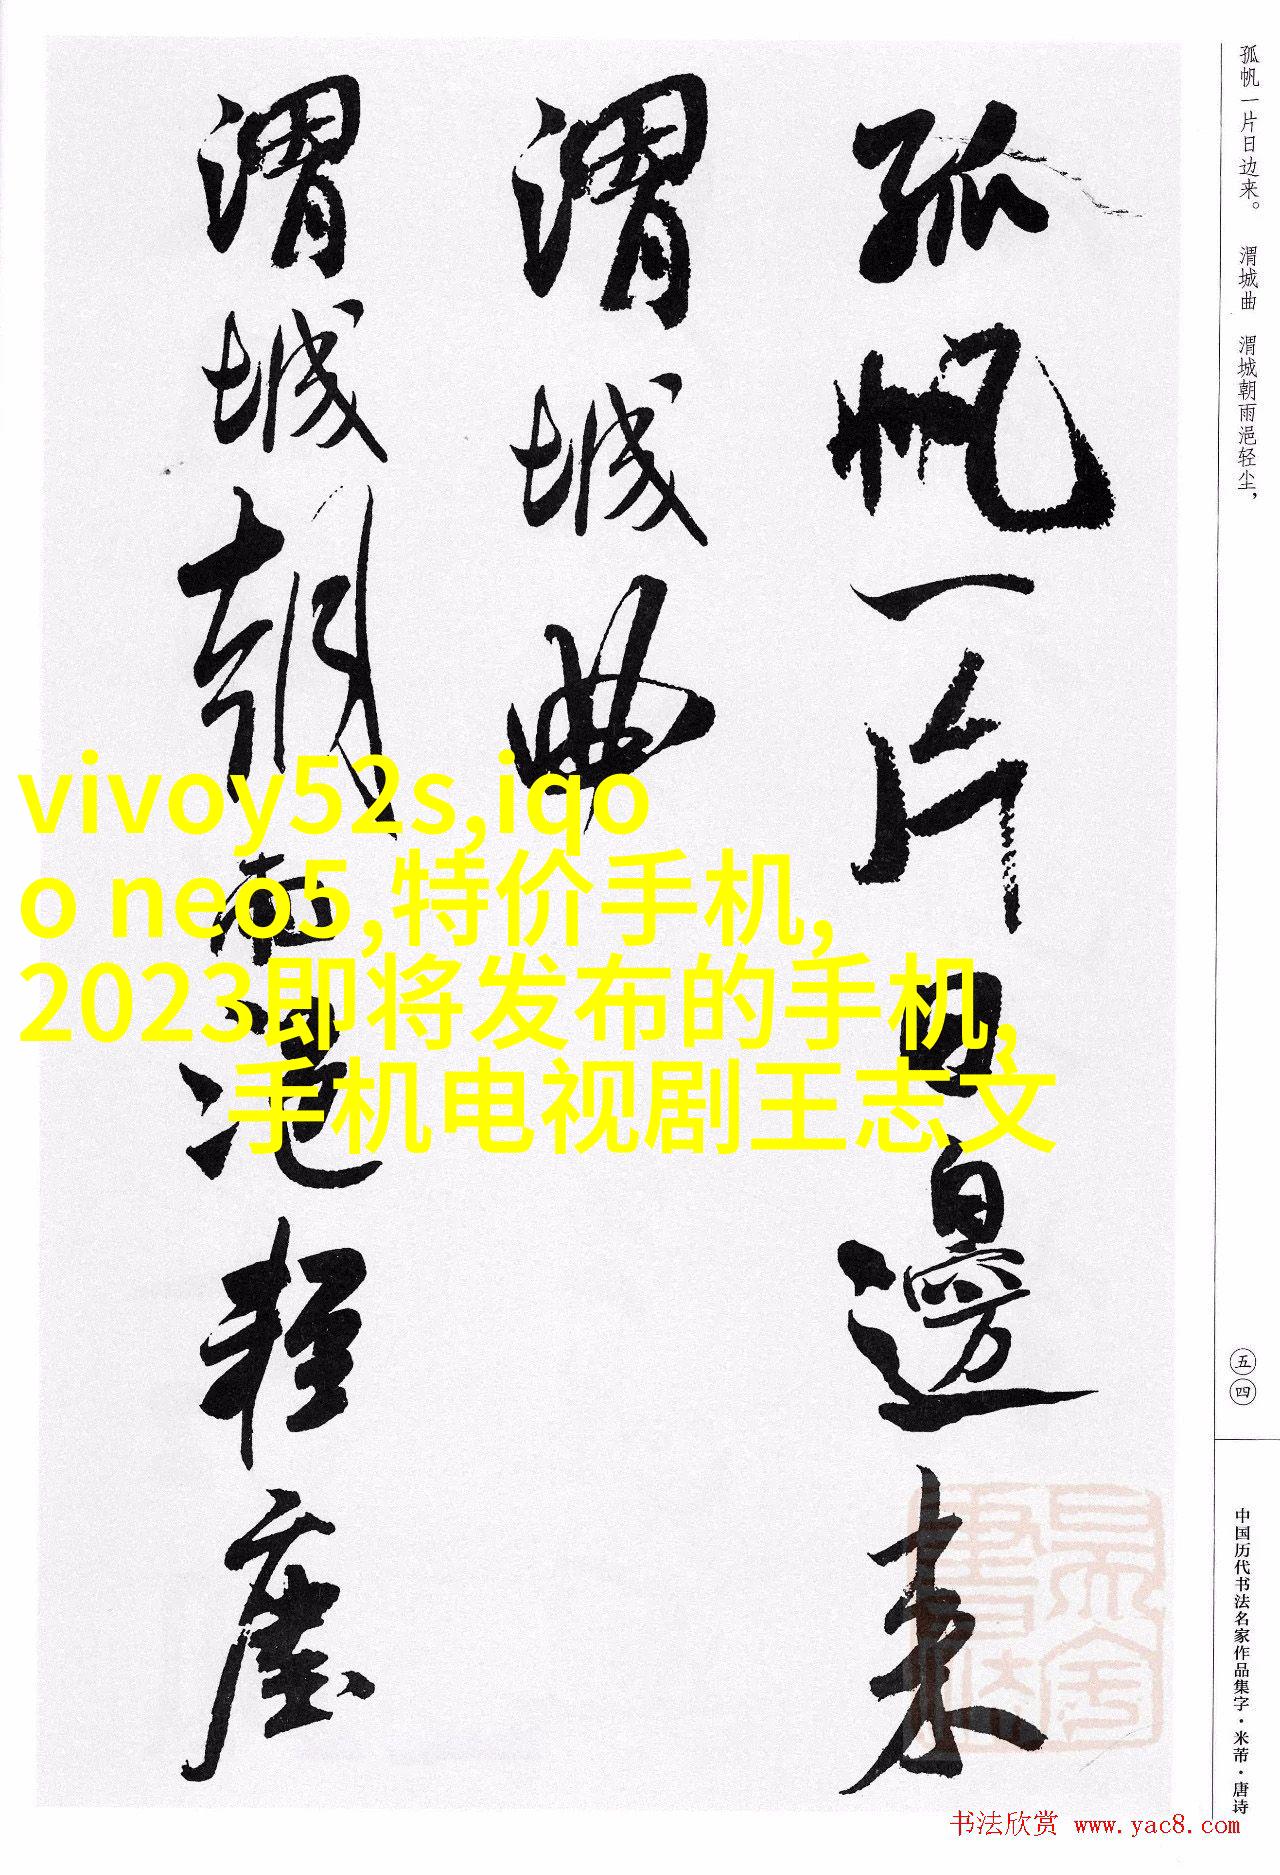 孤帆一片日边来。 渭城曲 渭城朝雨浥轻尘，
孤帆一片日邊来
渭城曲
渭城朝雨浥轻塵
vivoy52s,iqo
o neo5,特价手机,
2023即将发布的手机,
手机电视剧王志文
五四
中国历代书法名家作品集字·米芾·唐诗
书法欣赏 www.yac8.com